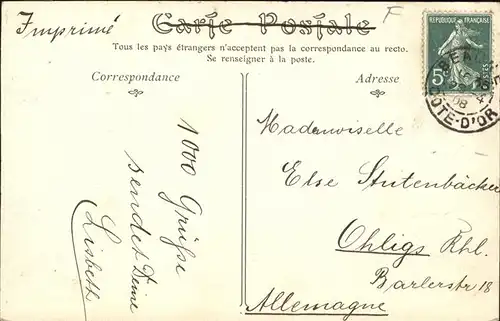 Imprimé
Carte Postale
F
Tous les pays étrangers n'acceptent pas la correspondance au recto.
Se renseigner à la poste.
Correspondance
Adresse
RÉPUBLIQUE FRANÇAISE
5c
POSTES
08
CÔTE-D'OR
1000 Grüße
sendet Deine
Lisbeth
Mademoiselle
Else Stutenbäcker
Ohligs Rhl.
Barlerstr 18
Allemagne